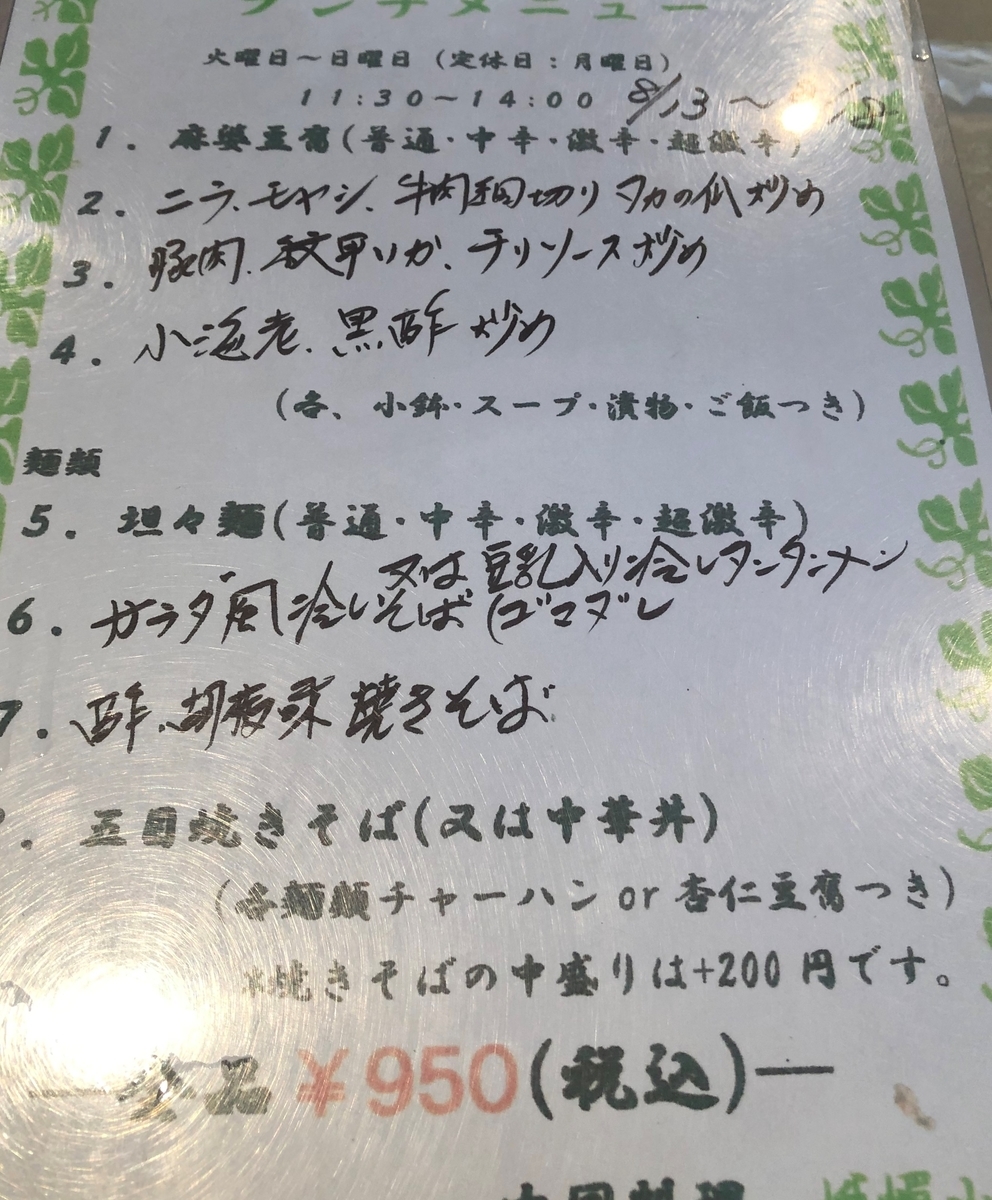 ランチメニュー
火曜日～日曜日（定休日：月曜日）
11:30～14:00 8/13～
1．麻婆豆腐(普通・中辛・激辛・超激辛)
2．ニラ、モヤシ、牛肉細切りタカの爪炒め
3．豚肉、紋甲いか、チリソース炒め
4．小海老、黒酢炒め
（各、小鉢・スープ・漬物・ご飯つき）
麺類
5．坦々麺(普通・中辛・激辛・超激辛)
又は豆乳入り冷しタンタンメン
6．サラダ風冷しそば(ゴマダレ
7．酢、胡椒味焼きそば
．五目焼きそば(又は中華丼)
（各麺類チャーハン or 杏仁豆腐つき）
※焼きそばの中盛りは+200円です。
全品 ¥950(税込)―
中国料理